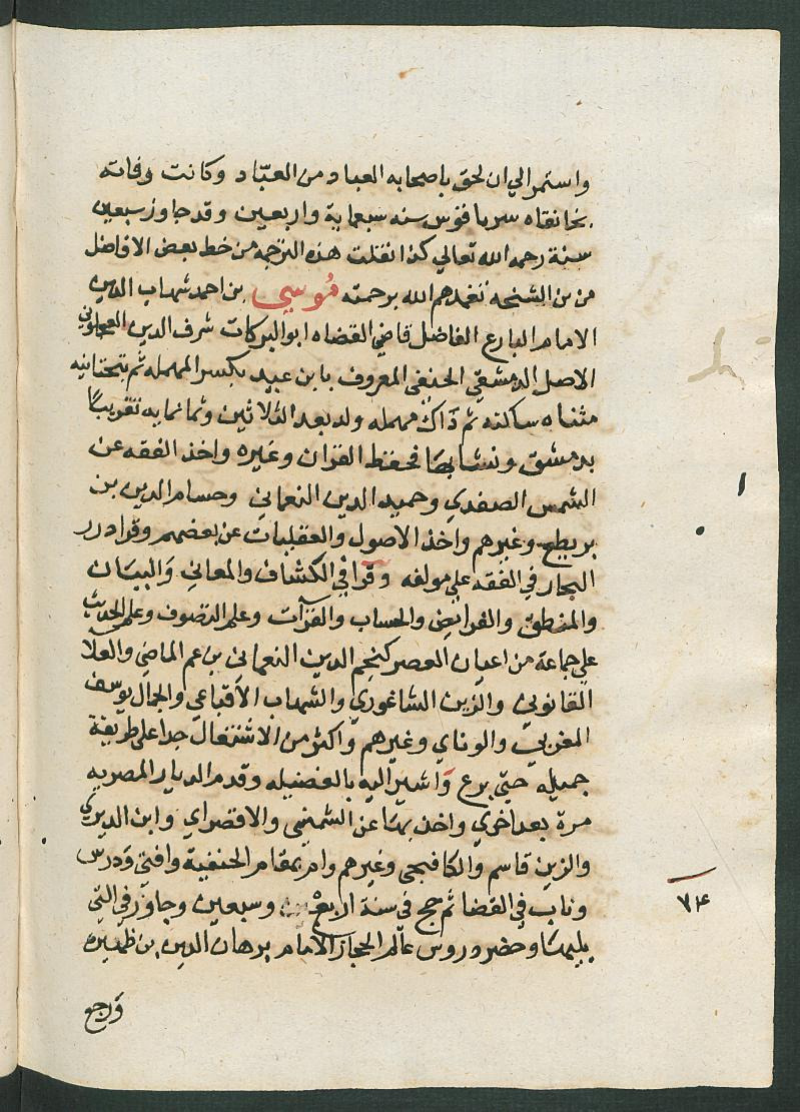 واستمر الي ان لحق باصحابه العباد من العبّاد وكانت وفاته
بخانقاه سرياقوس سنه سبعماية واربعين وقد جاوز سبعين
سنة رحمه الله تعالي كذا نقلت هذه الترجمه من خط بعض الافاضل
من بن الشحنه تغمدهم الله برحمته موسي بن احمد شهاب الدين
الامام البارع الفاضل قاضي القضاه ابو البركات شرف الدين العجلوني
الاصل الدمشقي الحنفي المعروف بابن عبيد بكسر المهمله ثم بتحتانيه
مثناه ساكنه ثم ذاك مهمله ولد بعد الثلاثين وثمانمايه تقريبًا
بدمشق ونشا بها فحفظ القران وغيره واخذ الفقه عن
الشمس الصفدي وحميد الدين النعماني وحسام الدين بن
بريطع وغيرهم واخذ الاصول والعقليات عن بعضهم وقرا درر
البحار في الفقه علي مولفه وقرا في الكشاف والمعاني والبيان
والمنطق والفرايض والحساب والقرآت وعلم التصوف وعلم الحديث
علي جماعة من اعيان العصر كنجم الدين النعماني بن عم الماضي والعلآ
القانوني والزين الشاغوري والشهاب الاقباعي والجمال يوسف
المغربي والوناي وغيرهم واكثر من الاشتغال جدا علي طريقة
جميله حتي برع واشير اليه بالفضيله وقدم الديار المصريه
مرة بعد اخري واخذ بها عن الشمني والاقصراي وابن الديري
والزين قاسم والكافيجي وغيرهم وام بمقام الحنفية وافتي ودرس
وناب في القضا ثم حج في سنة اربع وسبعين وجاور في التي
يليها وحضر دروس عالم الحجاز الامام برهان الدين بن ظهيره
ورجع
٧٤